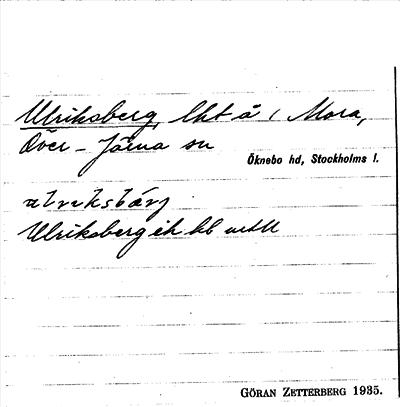 Ulriksberg, lht å / Mora,
Över-Järna sn
Öknebo hd, Stockholms l.
ulrıksbärj
Ulriksberg
GÖRAN ZETTERBERG 1935.